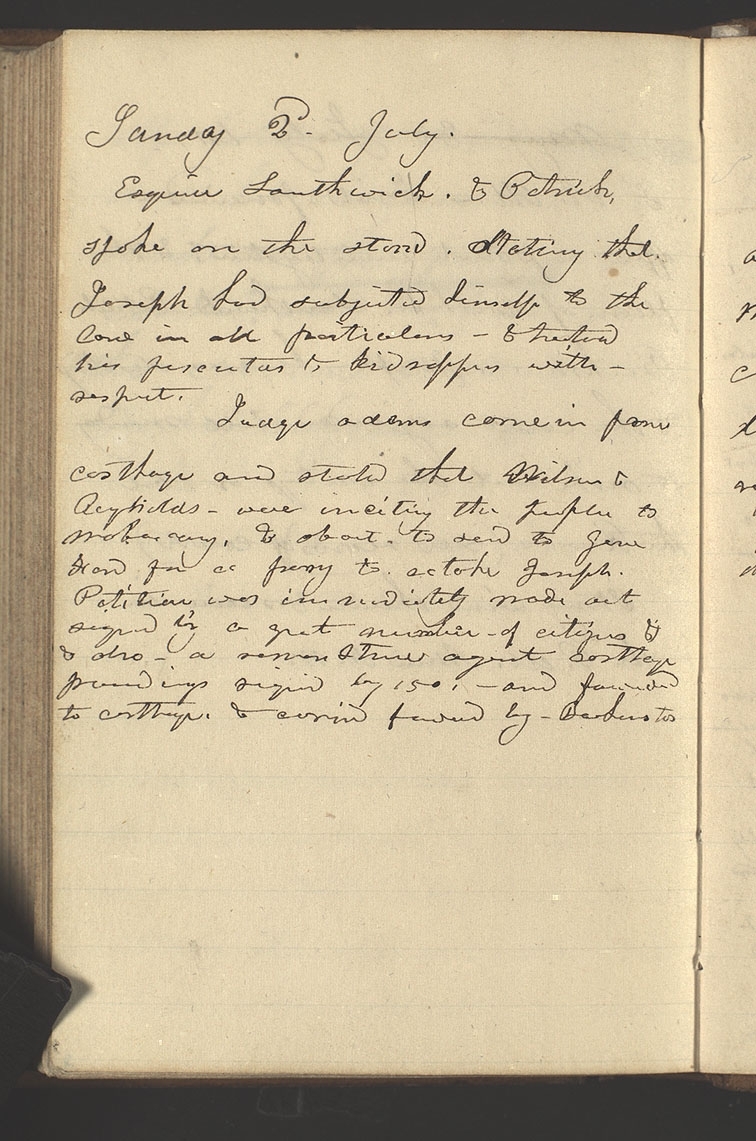 Sunday 2d. July.
Esquire Southwick. & Patrick,
spoke on the stand. Stating that.
Joseph had subjected himself to the
law in all particulars - & treated
his persecutors & kidnappers with-
respect.
Judge adams come in from
carthage and stated that Wilson &
Reynolds - were inciting the people to
mobocracy. & about. to send to Gove
for a posse to. retake Joseph.
Petition was immediately made out
signed by a great number of citizens &
& also - a remonstrance against carthage
proceedings signed by 150. - and forwarded
to carthage. & copied forward by -